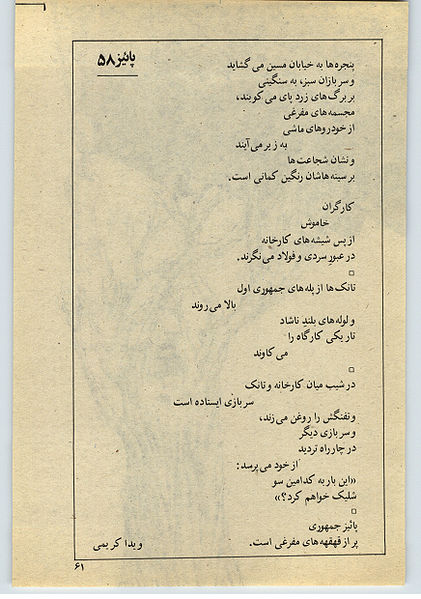 پائیز ۵۸
پنجره‌ها به خیابان مسین می گشاید
و سربازان سبز، به سنگینی
بر برگ‌های زرد پای می کوبند،
مجسمه‌های مفرغی
از خودروهای ماشی
به زیر می آیند
و نشان شجاعت‌ها
بر سینه‌هاشان رنگین کمانی است.
کارگران
خاموش
از پس شیشه‌های کارخانه
در عبور سردی و فولاد می نگرند.
تانک‌ها از پله‌های جمهوری اول
بالا می روند
و لوله‌های بلند ناشاد
تاریکی کارگاه را
می کاوند
در شیب میان کارخانه و تانک
سربازی ایستاده است
و تفنگش را روغن می زند،
و سربازی دیگر
در چارراه تردید
از خود می پرسد:
«این بار به کدامین سو
شلیک خواهم کرد؟»
پائیز جمهوری
پر از قهقهه‌های مفرغی است.
ویدا کریمی
۶۱